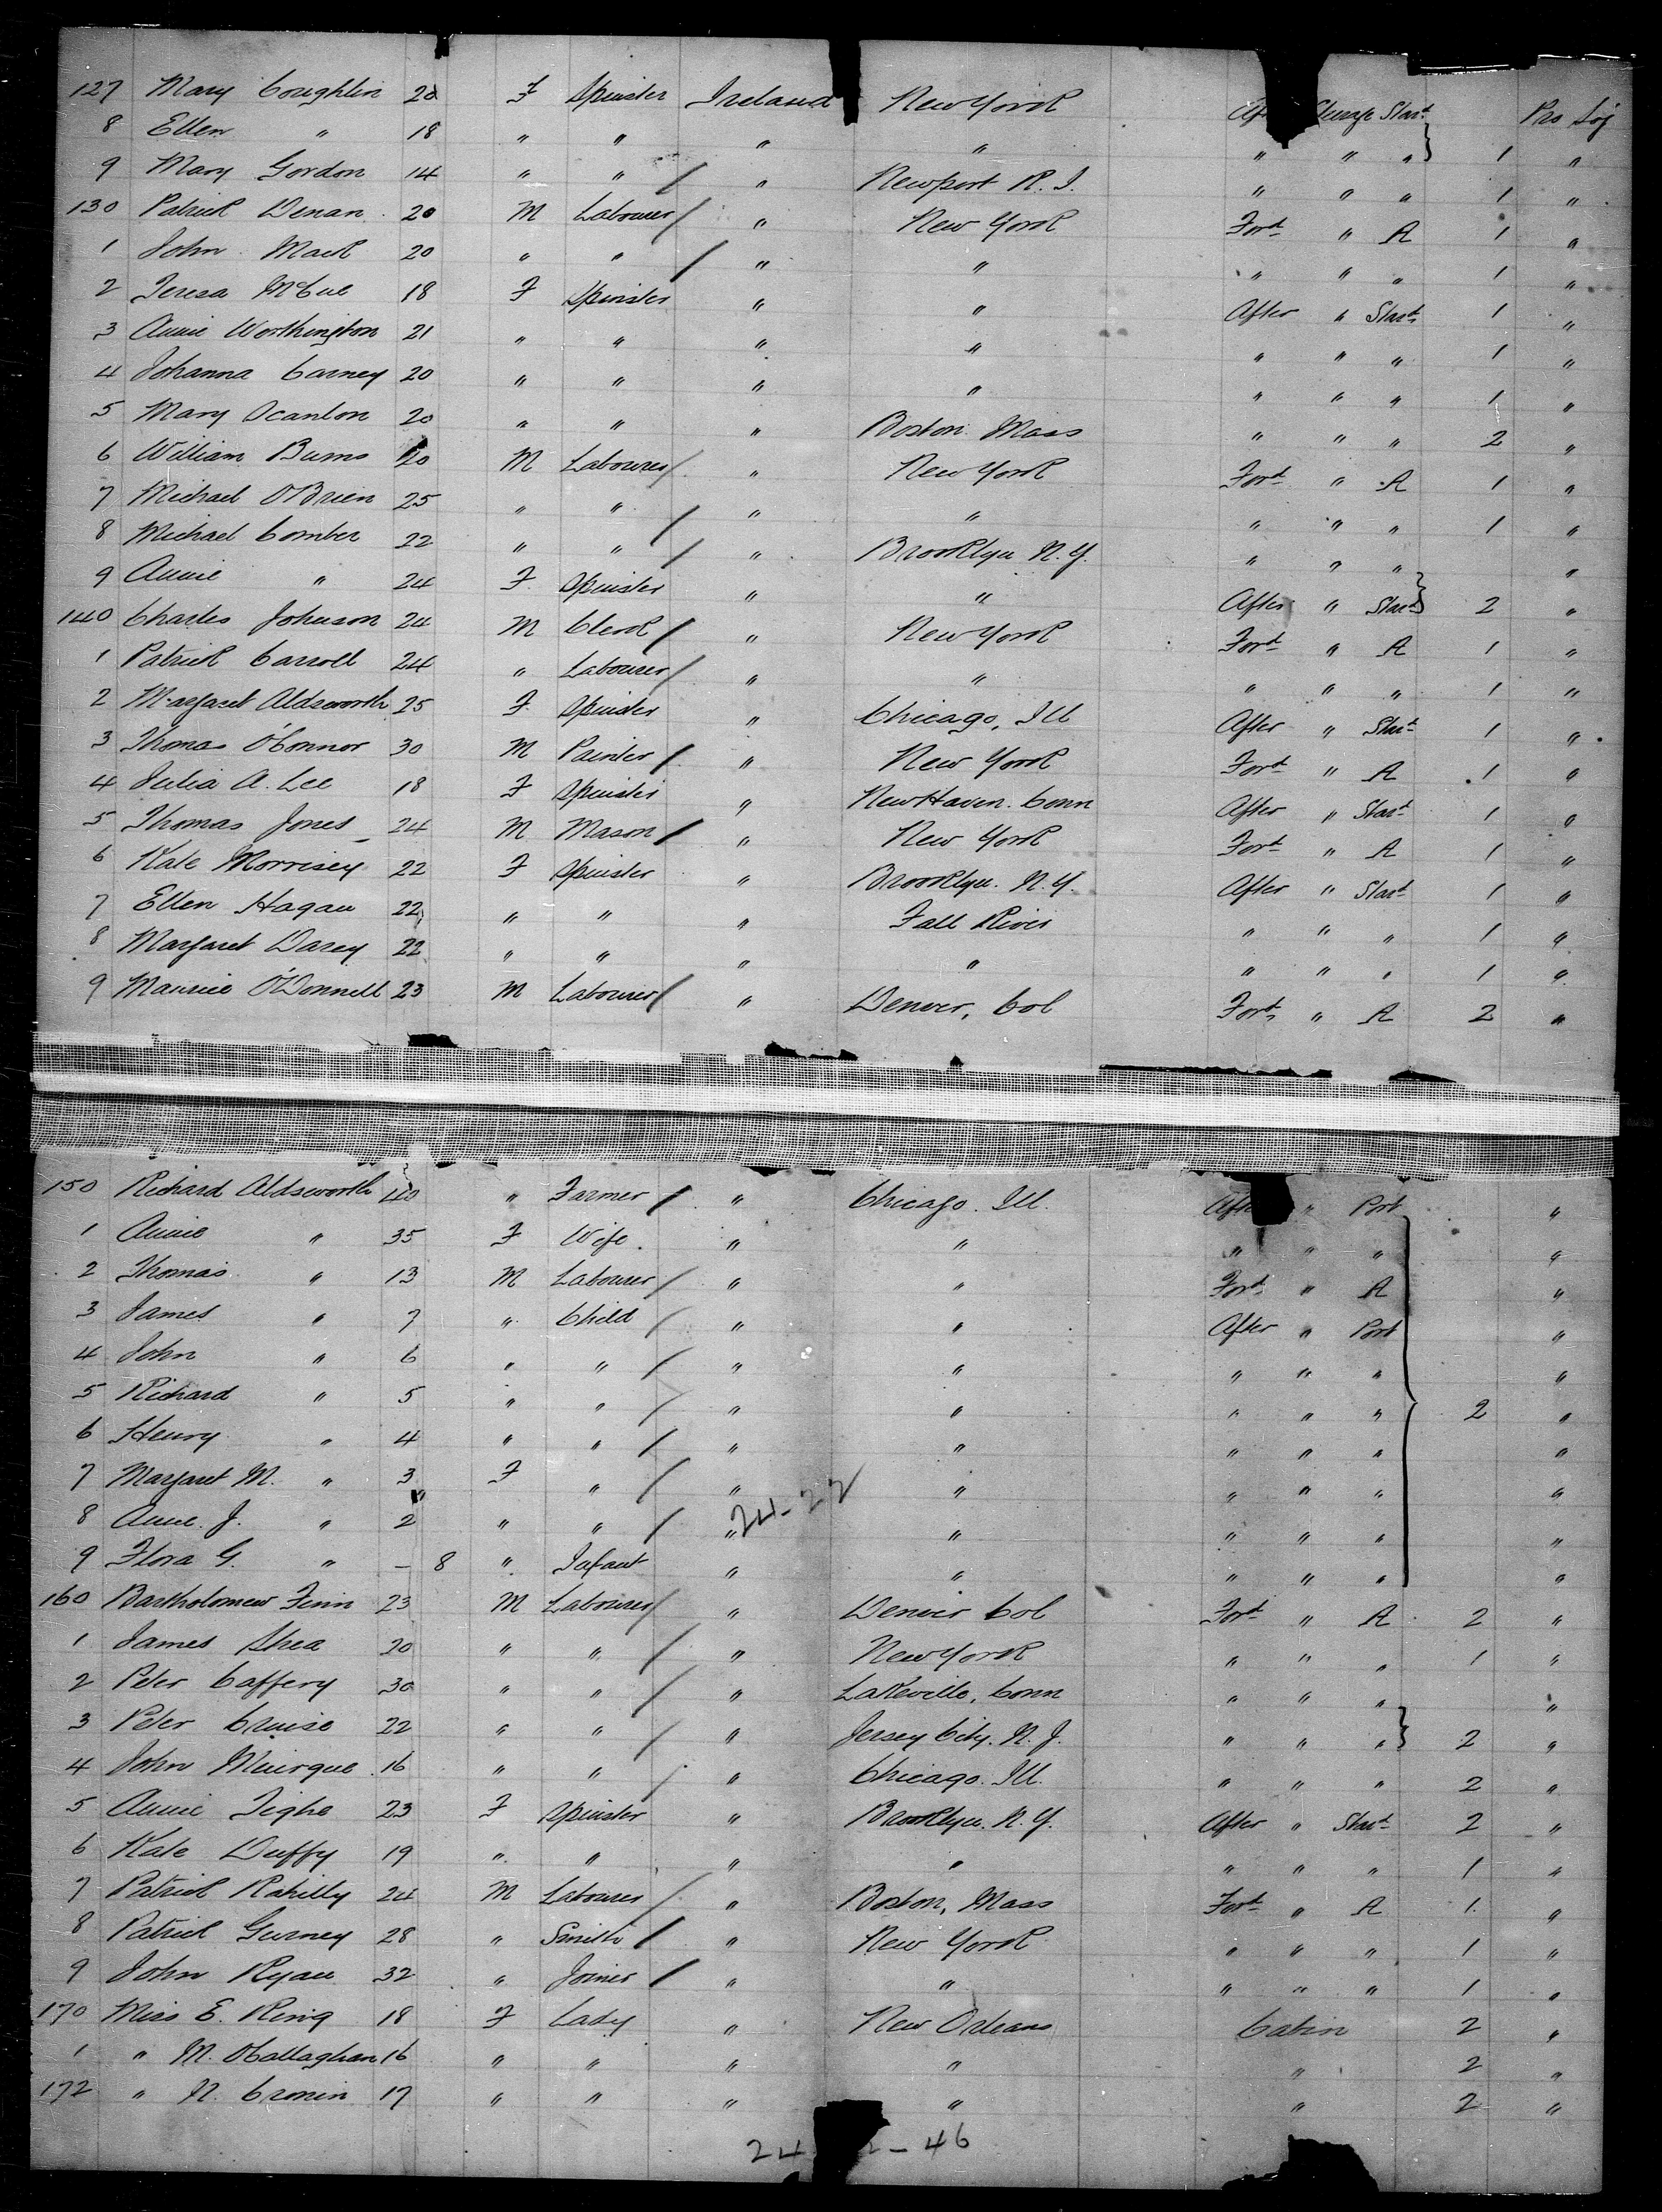 127 Mary Coughlin 20 F Spinster Ireland New York Steerage Starᵈ Pro Soj
8 Ellen " 18 " " " " " " " 1 "
9 Mary Gordon 14 " " / " Newport R. I. " " " 1 "
130 Patrick Denan 20 M Labourer / " New York Forᵈ " A 1 "
1 John Mack 20 " " / " " " " " 1 "
2 Teresa McCue 18 F Spinster " " After " Starᵈ 1 "
3 Annie Worthington 21 " " " " " " " 1 "
4 Johanna Carney 20 " " " " " " " 1 "
5 Mary Scanlon 20 " " " Boston Mass " " " 2 "
6 William Burns 20 M Labourer / " New York Forᵈ " A 1 "
7 Michael O'Brien 25 " " / " " " " " 1 "
8 Michael Comber 22 " " / " Brooklyn N. Y. " " " "
9 Annie " 24 F Spinster " " After " Starᵈ 2 "
140 Charles Johnson 24 M Clerk / " New York Forᵈ " A 1 "
1 Patrick Carroll 24 " Labourer / " " " " " 1 "
2 Margaret Aldsworth 25 F Spinster " Chicago, Ill After " Starᵈ 1 "
3 Thomas O'Connor 30 M Painter / " New York Forᵈ " A 1 "
4 Julia A. Lee 18 F Spinster " New Haven. Conn After " Starᵈ 1 "
5 Thomas Jones 24 M Mason / " New York Forᵈ " A 1 "
6 Kate Morrisey 22 F Spinster " Brooklyn. N. Y. After " Starᵈ 1 "
7 Ellen Hagan 22 " " " Fall River " " " 1 "
8 Margaret Darcy 22 " " " " " " " 1 "
9 Maurice O'Donnell 23 M Labourer / " Denver, Col Forᵈ " A 2 "
150 Richard Aldsworth 40 " Farmer / " Chicago. Ill. " Port "
1 Annie " 35 F Wife " " " " " "
2 Thomas " 13 M Labourer / " " Forᵈ " A "
3 James " 7 " Child / " " After " Port "
4 John " 6 " " / " " " " " "
5 Richard " 5 " " / " " " " " 2 "
6 Henry " 4 " " / " " " " " "
7 Margaret M. " 3 F " / " " " " " "
24-22
8 Anne J. " 2 " " / " " " " " "
9 Flora G. " - 8 " Infant " " " " " "
160 Bartholomew Finn 23 M Labourer / " Denver Col Forᵈ " A 2 "
1 James Shea 20 " " / " New York " " " 1 "
2 Peter Caffery 30 " " / " Lakeville, Conn " " " "
3 Peter Cruise 22 " " / " Jersey City. N. J. " " " 2 "
4 John 16 " " / " Chicago. Ill. " " " 2 "
5 Annie Tighe 23 F Spinster " Brooklyn. N. Y. After " Starᵈ 2 "
6 Kate Duffy 19 " " " " " " " 1 "
7 Patrick Rahilly 24 M Labourer / " Boston, Mass Forᵈ " A 1 "
8 Patrick Gurney 28 " Smith / " New York " " " 1 "
9 John Ryan 32 " Joiner / " " " " " 1 "
170 Miss E. King 18 F Lady " New Orleans Cabin 2 "
1 " M. O'Callaghan 16 " " " " " 2 "
172 " N. Cronin 17 " " " " " 2 "
24 - 46